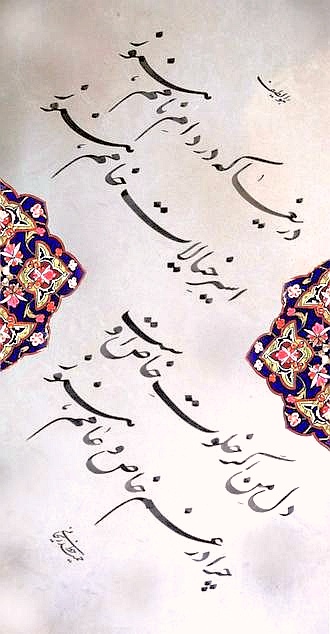 هواللطیف
دریغا که در دامِ نامم هنوز
اسیر خیالات خامم هنوز
دلِ من اگر خلوتِ خاص اوست
چرا در غم خاص و عامم هنوز